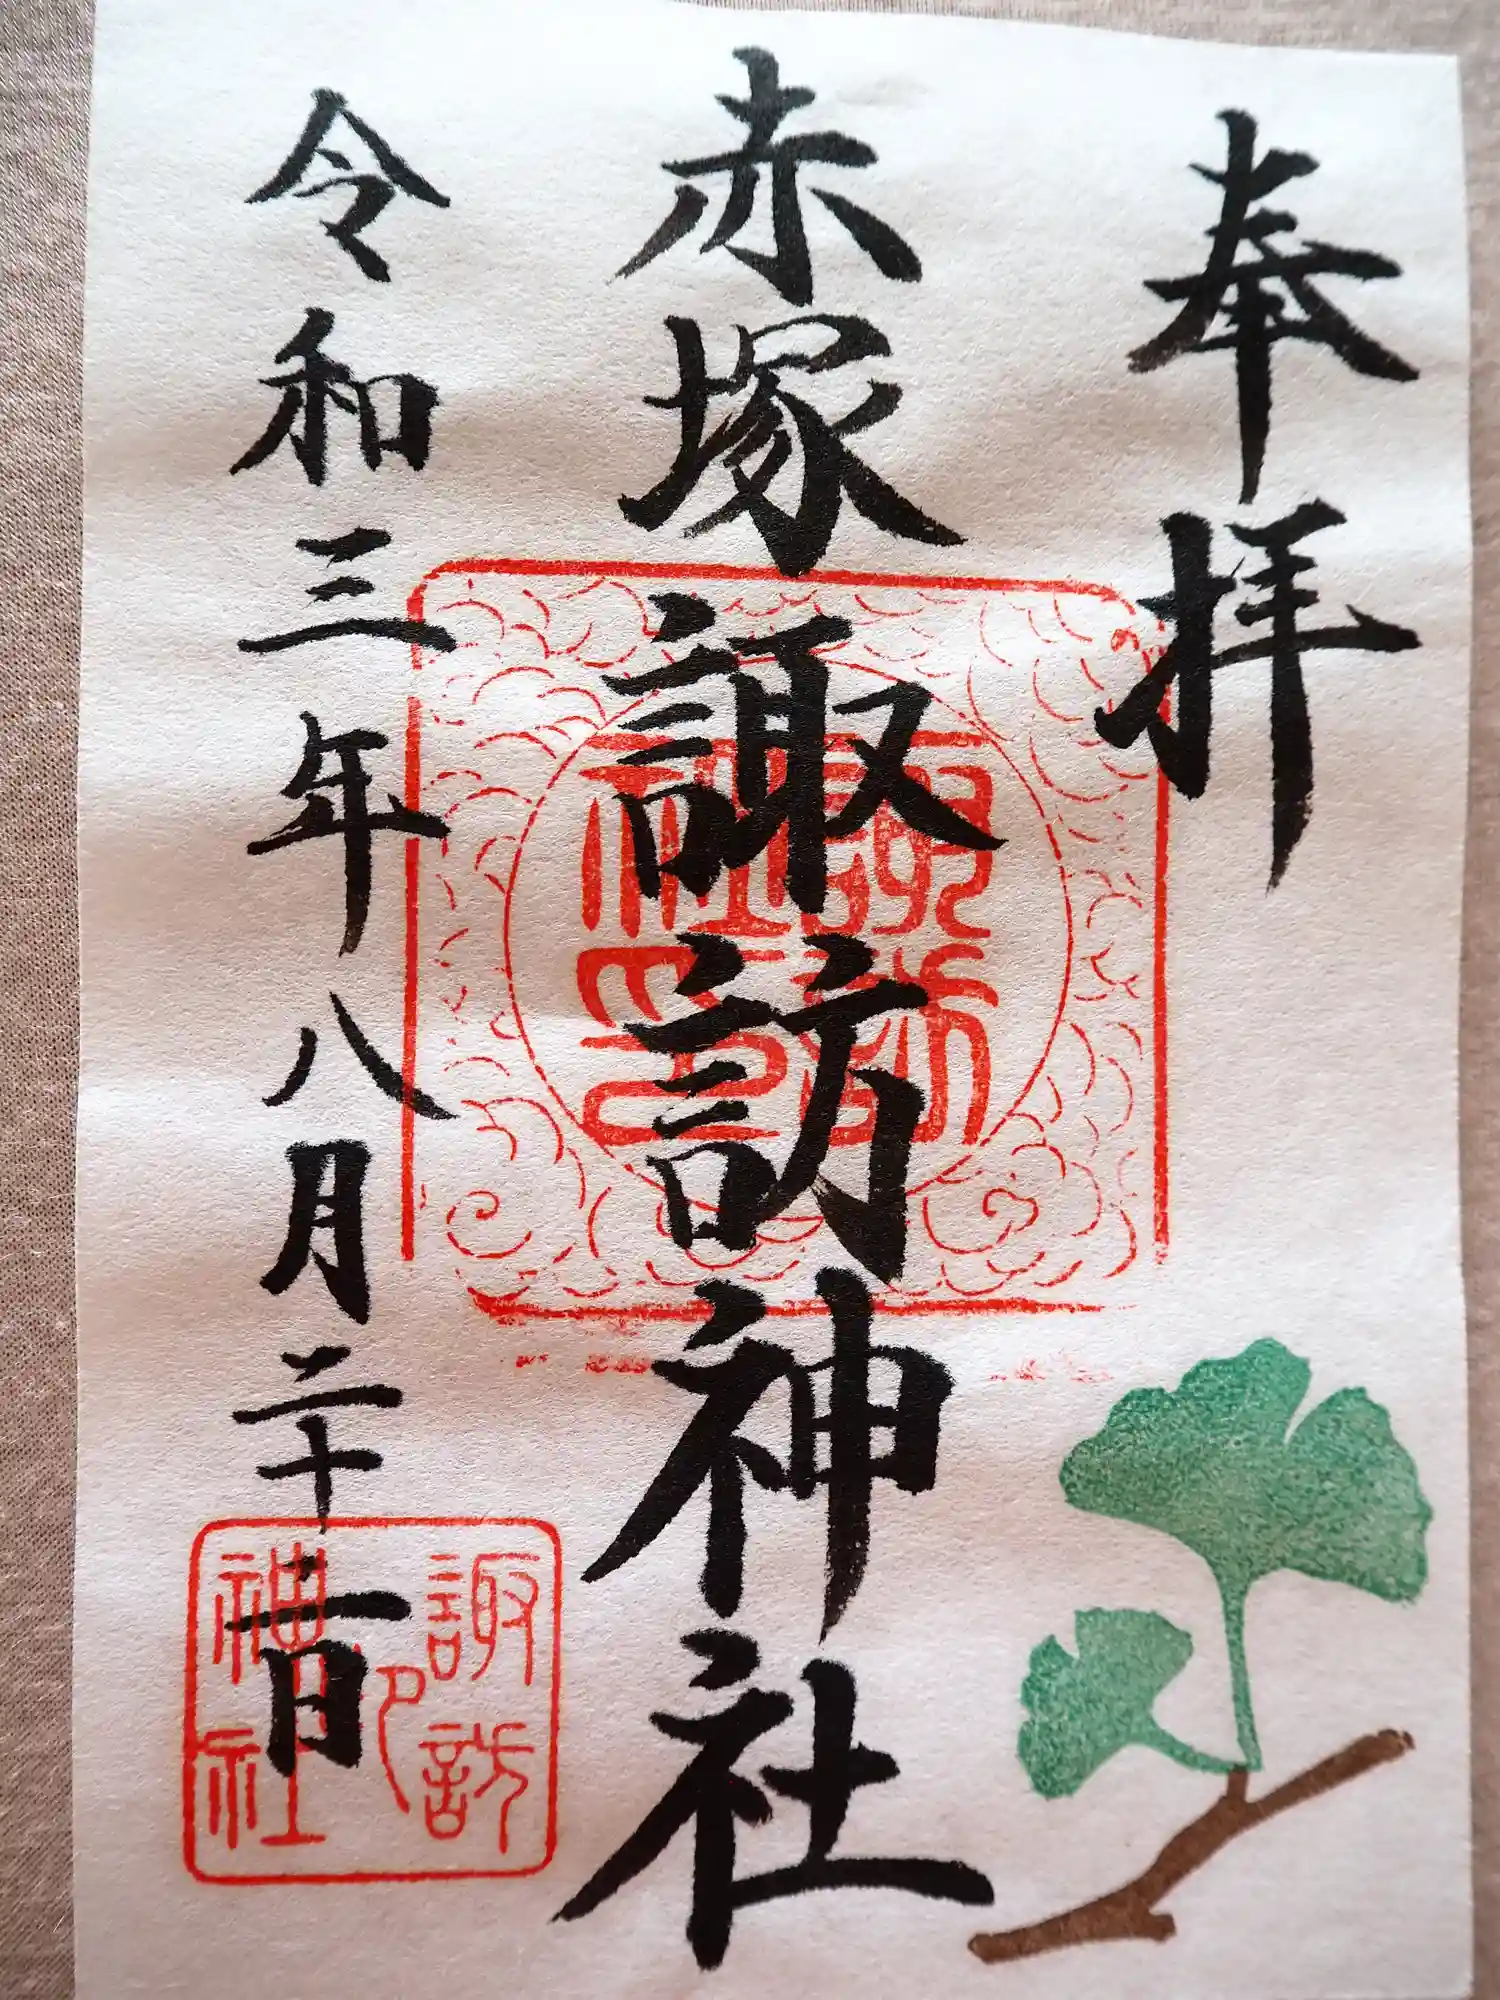 奉拝
赤塚諏訪神社
令和三年八月二十一日
諏訪
神社